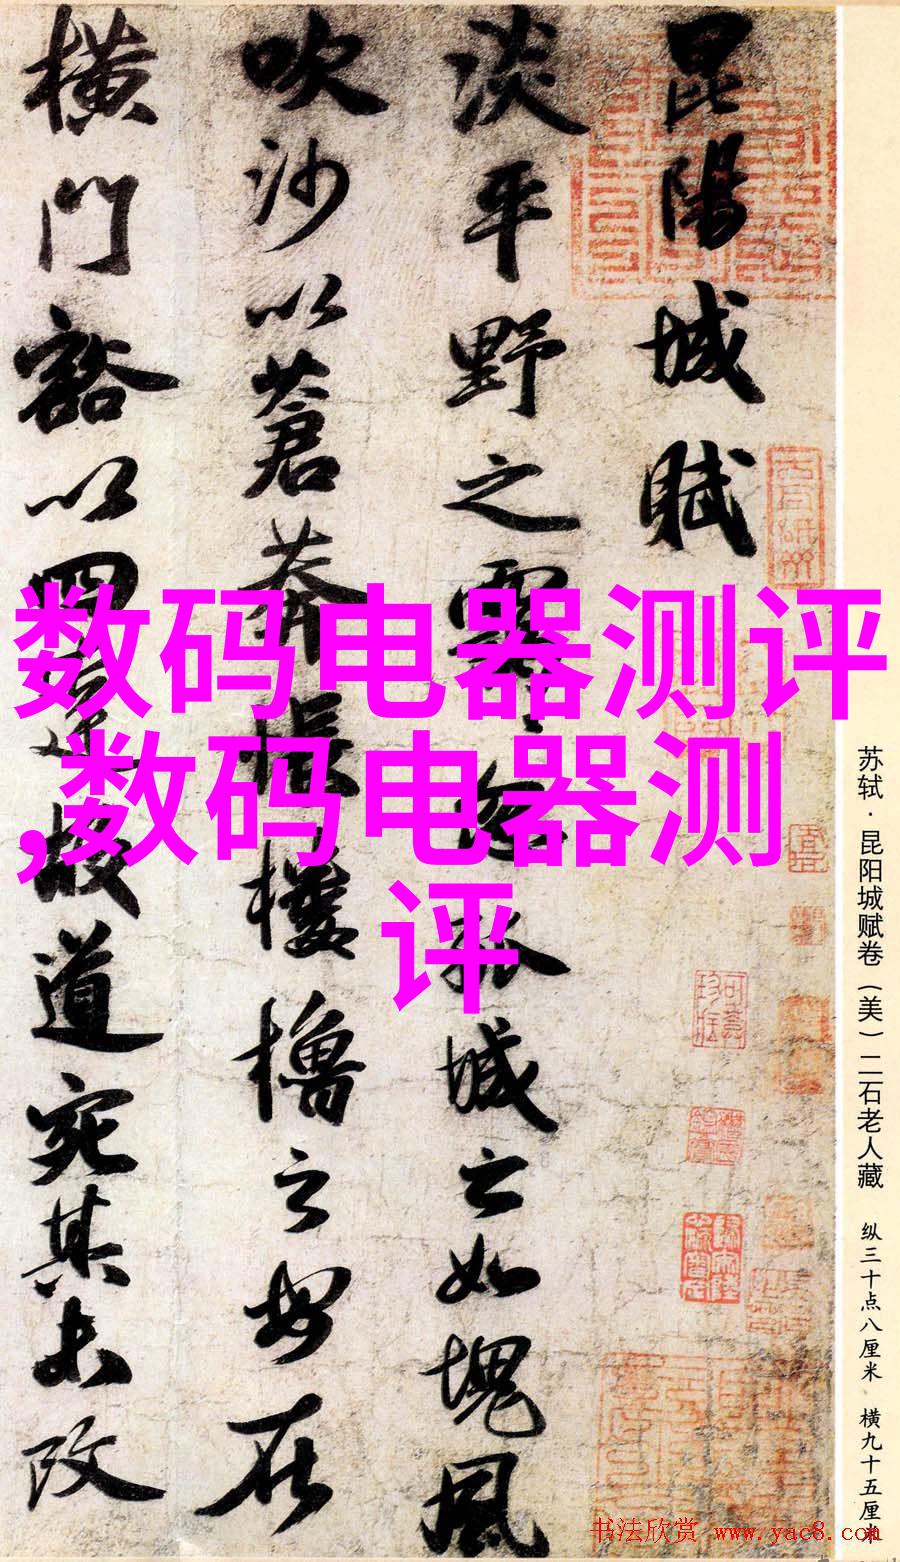 数码电器测评
,数码电器测
评
苏轼·昆阳城赋卷（美）二石老人藏 纵三十点八厘米 横九十五厘米
昆陽城賦
淡平野之靄〻忽孤城之如塊風
吹沙以蒼莽悵樓櫓之安在
橫門豁以四達故道宛其未改
书法欣赏 www.yac8.com